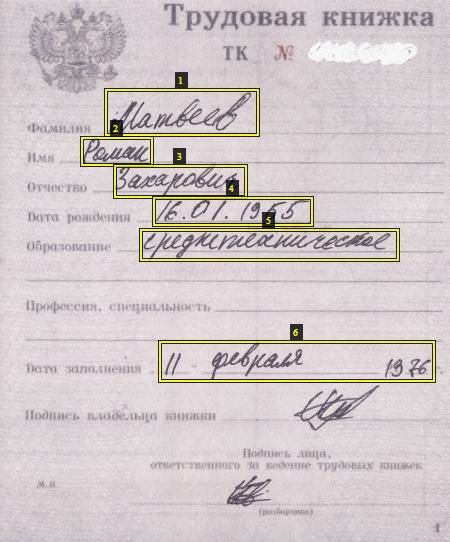 Трудовая книжка
ТК №
1
Фамилия Матвеев
2
Имя Роман
3
Отчество Захарович
4
Дата рождения 16.01.1955
5
Образование среднетехническое
Профессия, специальность
6
Дата заполнения 11 февраля 1976 г.
Подпись владельца книжки
Подпись лица,
ответственного за ведение трудовых книжек
М.П.
(разборчиво)
1